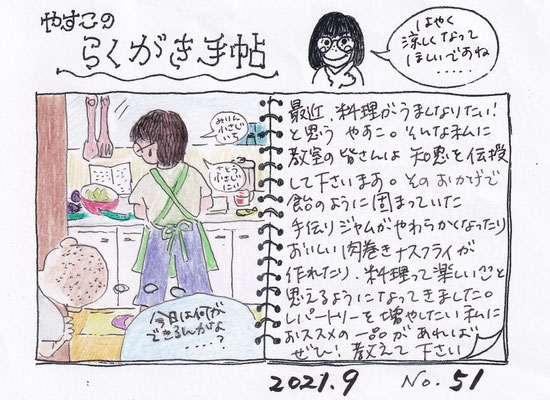 やすこの
らくがき手帖
はやく
涼しくなって
ほしいですね
.....
みりん
小さじ
いち
さとう
小さじ
に
今日は何が
できるんかな
....?
最近、料理がうまくなりたい!
と思う やすこ。そんな私に
教室の皆さんは 知恵を伝授
して下さいます。そのおかげで
飴のように固まっていた
手作りジャムがやわらかくなったり
おいしい肉巻きナスフライが
作れたり、料理って楽しいなと
思えるようになってきました。
レパートリーを増やしたい私に
おススメの一品があれば
ぜひ!教えて下さい
2021.9 No.51